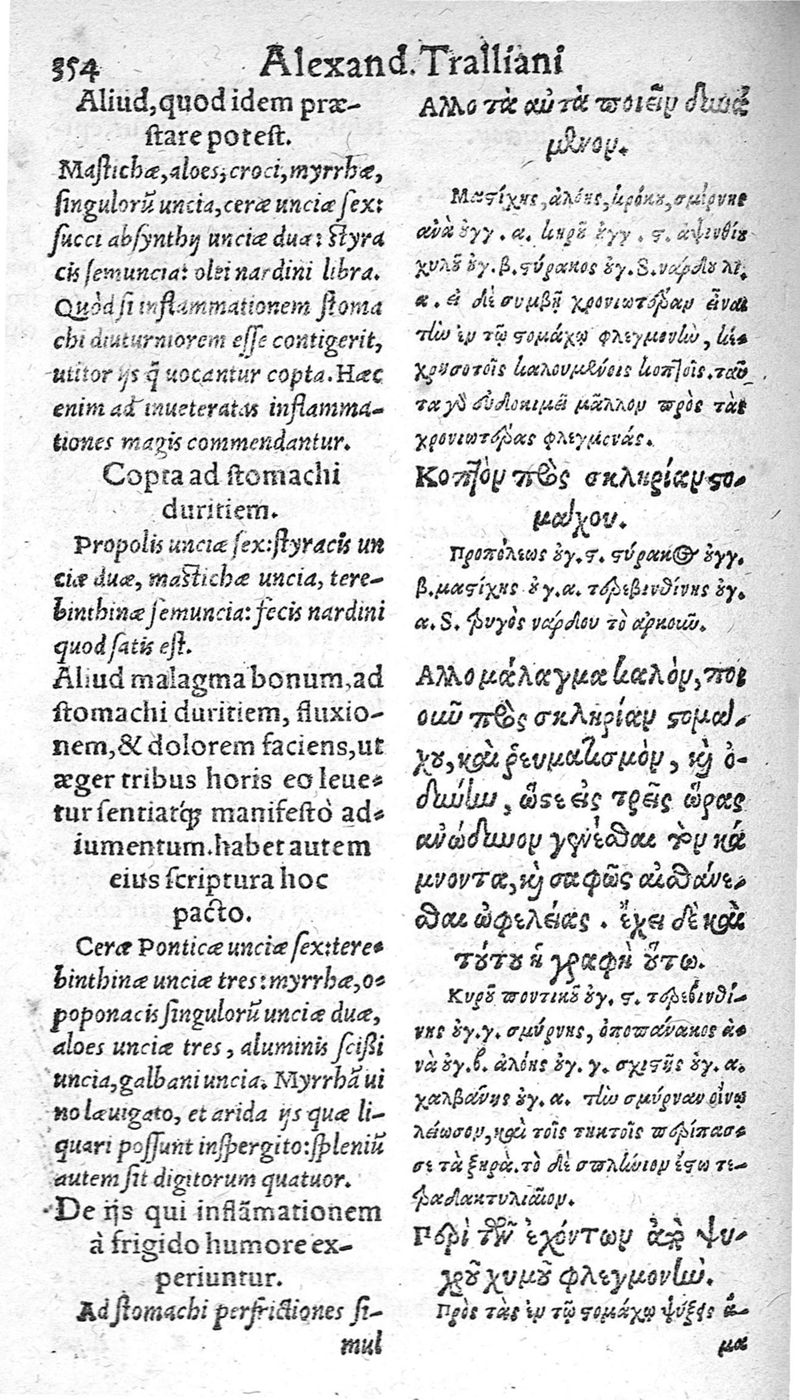 354
Alexand. Tralliani
Aliud, quod idem præ-
stare potest.
Mastichæ, aloes, croci, myrrhæ,
singulorũ uncia, ceræ unciæ sex:
succi absynthij unciæ duæ: styra
cis semuncia: olei nardini libra.
Quòd si inflammationem stoma
chi diuturniorem esse contigerit,
utitor ijs q̃ uocantur copta. Hæc
enim ad inueteratas inflamma-
tiones magis commendantur.
Copta ad stomachi
duritiem.
Propolis unciæ sex: styracis un
ciæ duæ, mastichæ uncia, tere-
binthinæ semuncia: fecis nardini
quod satis est.
Aliud malagma bonum, ad
stomachi duritiem, fluxio-
nem, & dolorem faciens, ut
æger tribus horis eo leue-
tur sentiatq́; manifestò ad-
iumentum. habet autem
eius scriptura hoc
pacto.
Ceræ Ponticæ unciæ sex: tere-
binthinæ unciæ tres: myrrhæ, o-
poponacis singulorũ unciæ duæ,
aloes unciæ tres, aluminis scißi
uncia, galbani uncia. Myrrhã ui
no læuigato, et arida ijs quæ li-
quari possunt inspergito: spleniũ
autem sit digitorum quatuor.
De ijs qui inflãmationem
à frigido humore ex-
periuntur.
Ad stomachi perfrictiones si-
mul
Αλλο τὰ αὐτὰ ποιεῖν δυνά
μενον.
Μαστίχης, ἀλόης, κρόκου, σμύρνης
ἀνὰ οὐγγ. α. κηροῦ οὐγγ. ϛ. ἀψινθίου
χυλοῦ οὐγ. β. στύρακος οὐγ. S. νάρδου λί.
α. εἰ δὲ συμβῇ χρονιωτέραν εἶναι
τὴν ἐν τῷ στομάχῳ φλεγμονὴν, κέ-
χρησο τοῖς καλουμένοις κοπτοῖς. ταῦ
τα γὸ εὐδοκιμεῖ μᾶλλον πρὸς τὰς
χρονιωτέρας φλεγμονάς.
Κοπτὸν πρὸς σκληρίαν στο-
μάχου.
Προπόλεως οὐγ. ϛ. στύρακος οὐγγ.
β. μαστίχης οὐγ. α. τερεβινθίνης οὐγ.
α. S. τρυγὸς νάρδου τὸ ἀρκοῦν.
Αλλο μάλαγμα καλὸν, ποι
οῦν πρὸς σκληρίαν στομά-
χου, καὶ ῥευματισμὸν, καὶ ὀ-
δύνην, ὥστε εἰς τρεῖς ὥρας
ἀνώδυνον γενέσθαι τὸν κά
μνοντα, καὶ σαφῶς αἰσθάνε-
σθαι ὠφελείας. ἔχει δὲ καὶ
τούτου ἡ γραφὴ οὕτω.
Κηροῦ ποντικοῦ οὐγ. ϛ. τερεβινθί-
νης οὐγ. γ. σμύρνης, ὀποπάνακος ἀ-
νὰ οὐγ. β. ἀλόης οὐγ. γ. σχιστῆς οὐγ. α.
χαλβάνης οὐγ. α. τὴν σμύρναν οἴνῳ
λείωσον, καὶ τοῖς τηκτοῖς περίπασ-
σε τὰ ξηρά. τὸ δὲ σπλήνιον ἔστω τε-
τραδακτυλιαῖον.
Περὶ τῶν ἐχόντων ἀπὸ ψυ-
χροῦ χυμοῦ φλεγμονὴν.
Πρὸς τὰς ἐν τῷ στομάχῳ ψύξεις ἅ-
μα